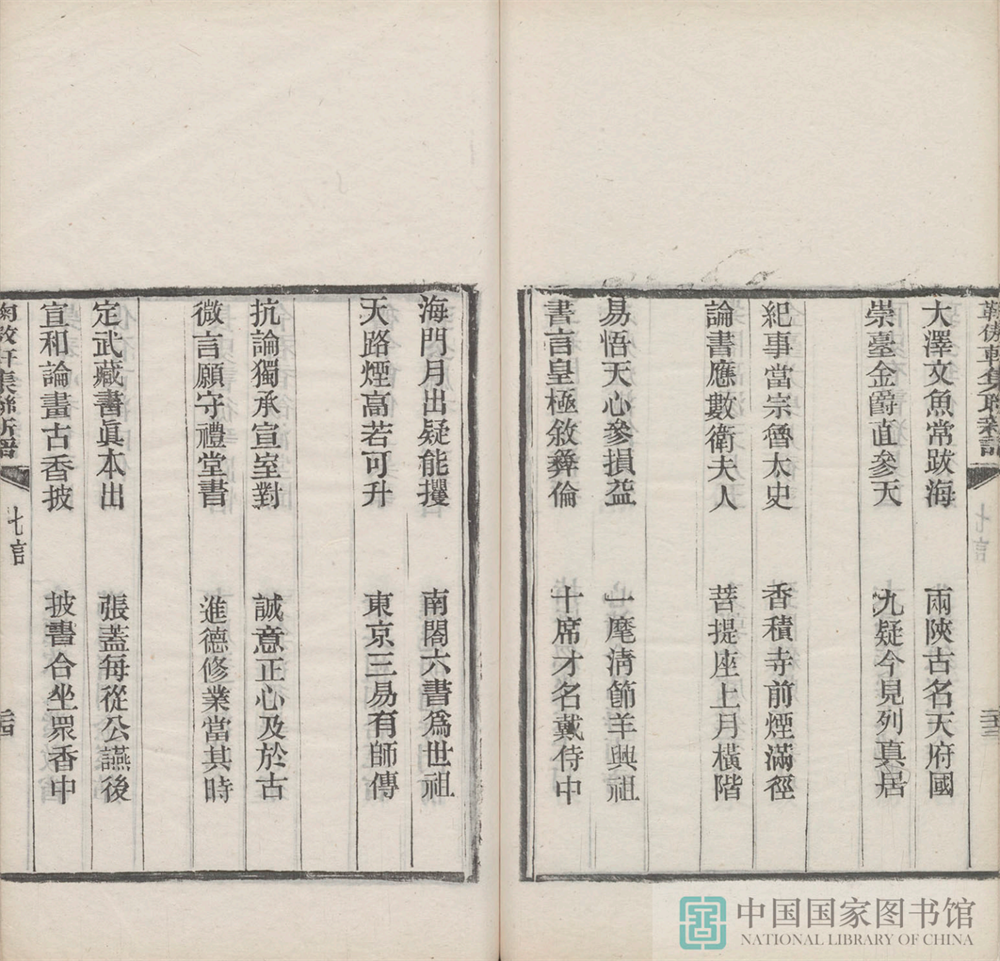 七言
大澤文魚常跋海　兩陝古名天府國
崇臺金爵直參天　九疑今見列真居
紀事當宗魯太史　香積寺前煙滿徑
論書應數衛夫人　菩提座上月橫階
易悟天心參損益　一麾清節羊興祖
書言皇極敘彝倫　十席才名戴侍中
海門月出疑能攫　南閣六書為世祖
天路煙高若可升　東京三易有師傳
抗論獨承宣室對　誠意正心及於古
微言願守禮堂書　進德修業當其時
定武藏書眞本出　張蓋每從公讌後
宣和論畫古香披　披書合坐眾香中
集聯新語
七言
中国国家图书馆
NATIONAL LIBRARY OF CHINA